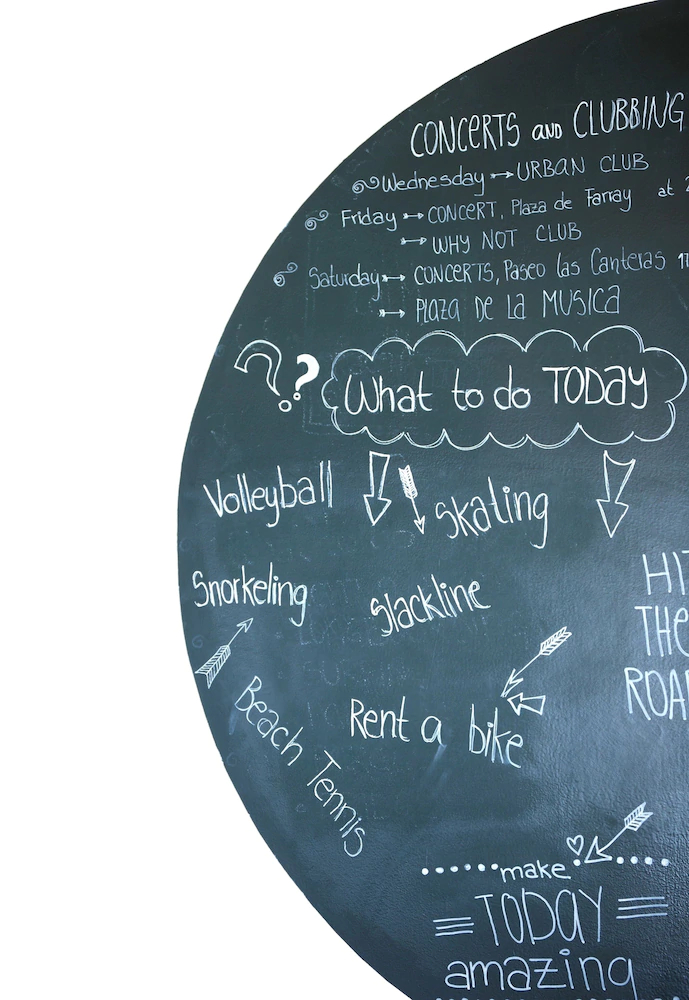 CONCERTS AND CLUBBING
Wednesday → URBAN CLUB
Friday → CONCERT, Plaza de Farray at 2
→ WHY NOT CLUB
Saturday → CONCERTS, Paseo las Canteras 17
→ PLAZA DE LA MUSICA
??
What to do TODAY
Volleyball
Skating
Snorkeling
Slackline
HIT
THE
ROA
Rent a bike
Beach Tennis
make
TODAY
amazing